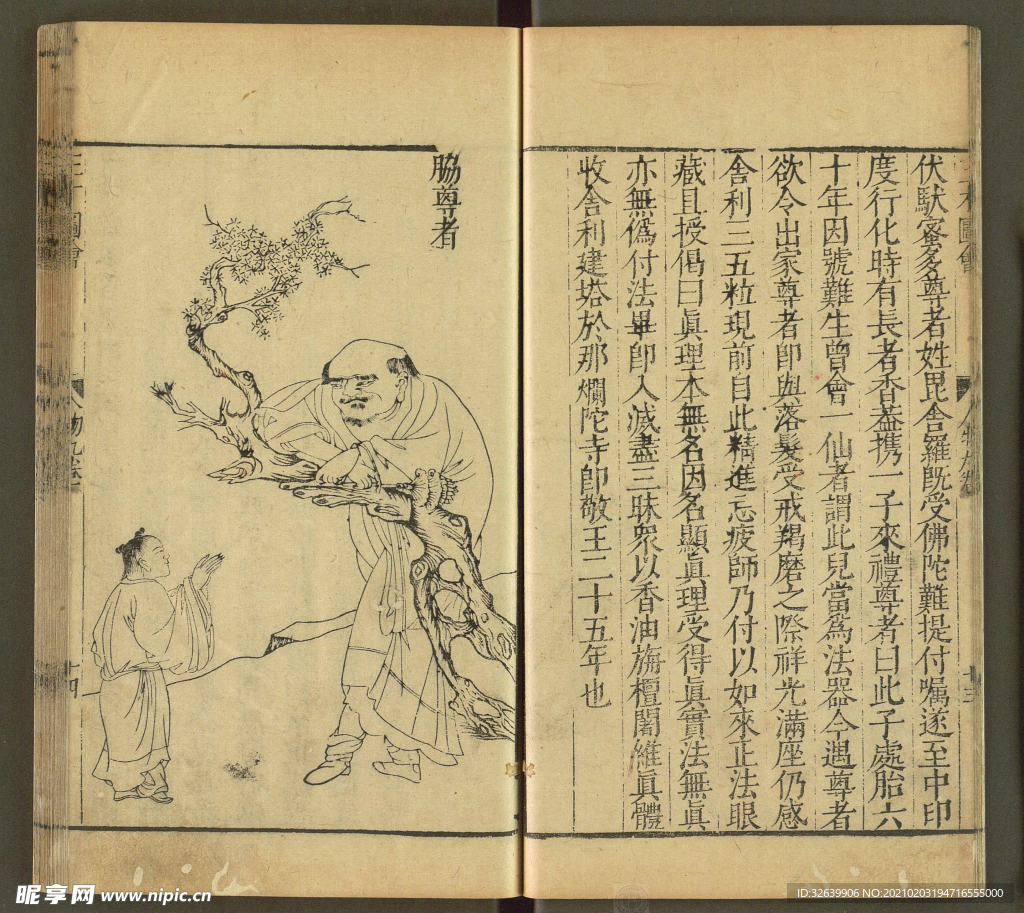 伏馱蜜多尊者姓毘舍羅旣受佛陀難提付囑遂至中印
度行化時有長者香蓋携一子來禮尊者曰此子處胎六
十年因號難生曾會一仙者謂此兒當爲法器今遇尊者
欲令出家尊者卽與落髮受戒羯磨之際祥光滿座仍感
舍利三五粒現前自此精進忘疲師乃付以如來正法眼
藏且授偈曰眞理本無名因名顯眞理受得眞實法無眞
亦無僞付法畢卽入滅盡三昧衆以香油旃檀闍維眞體
收舍利建塔於那爛陀寺卽敬王二十五年也
脇尊者
圖會
十三
十四
昵享网 www.nipic.cn
ID:32639906 NO:20210203194716555000